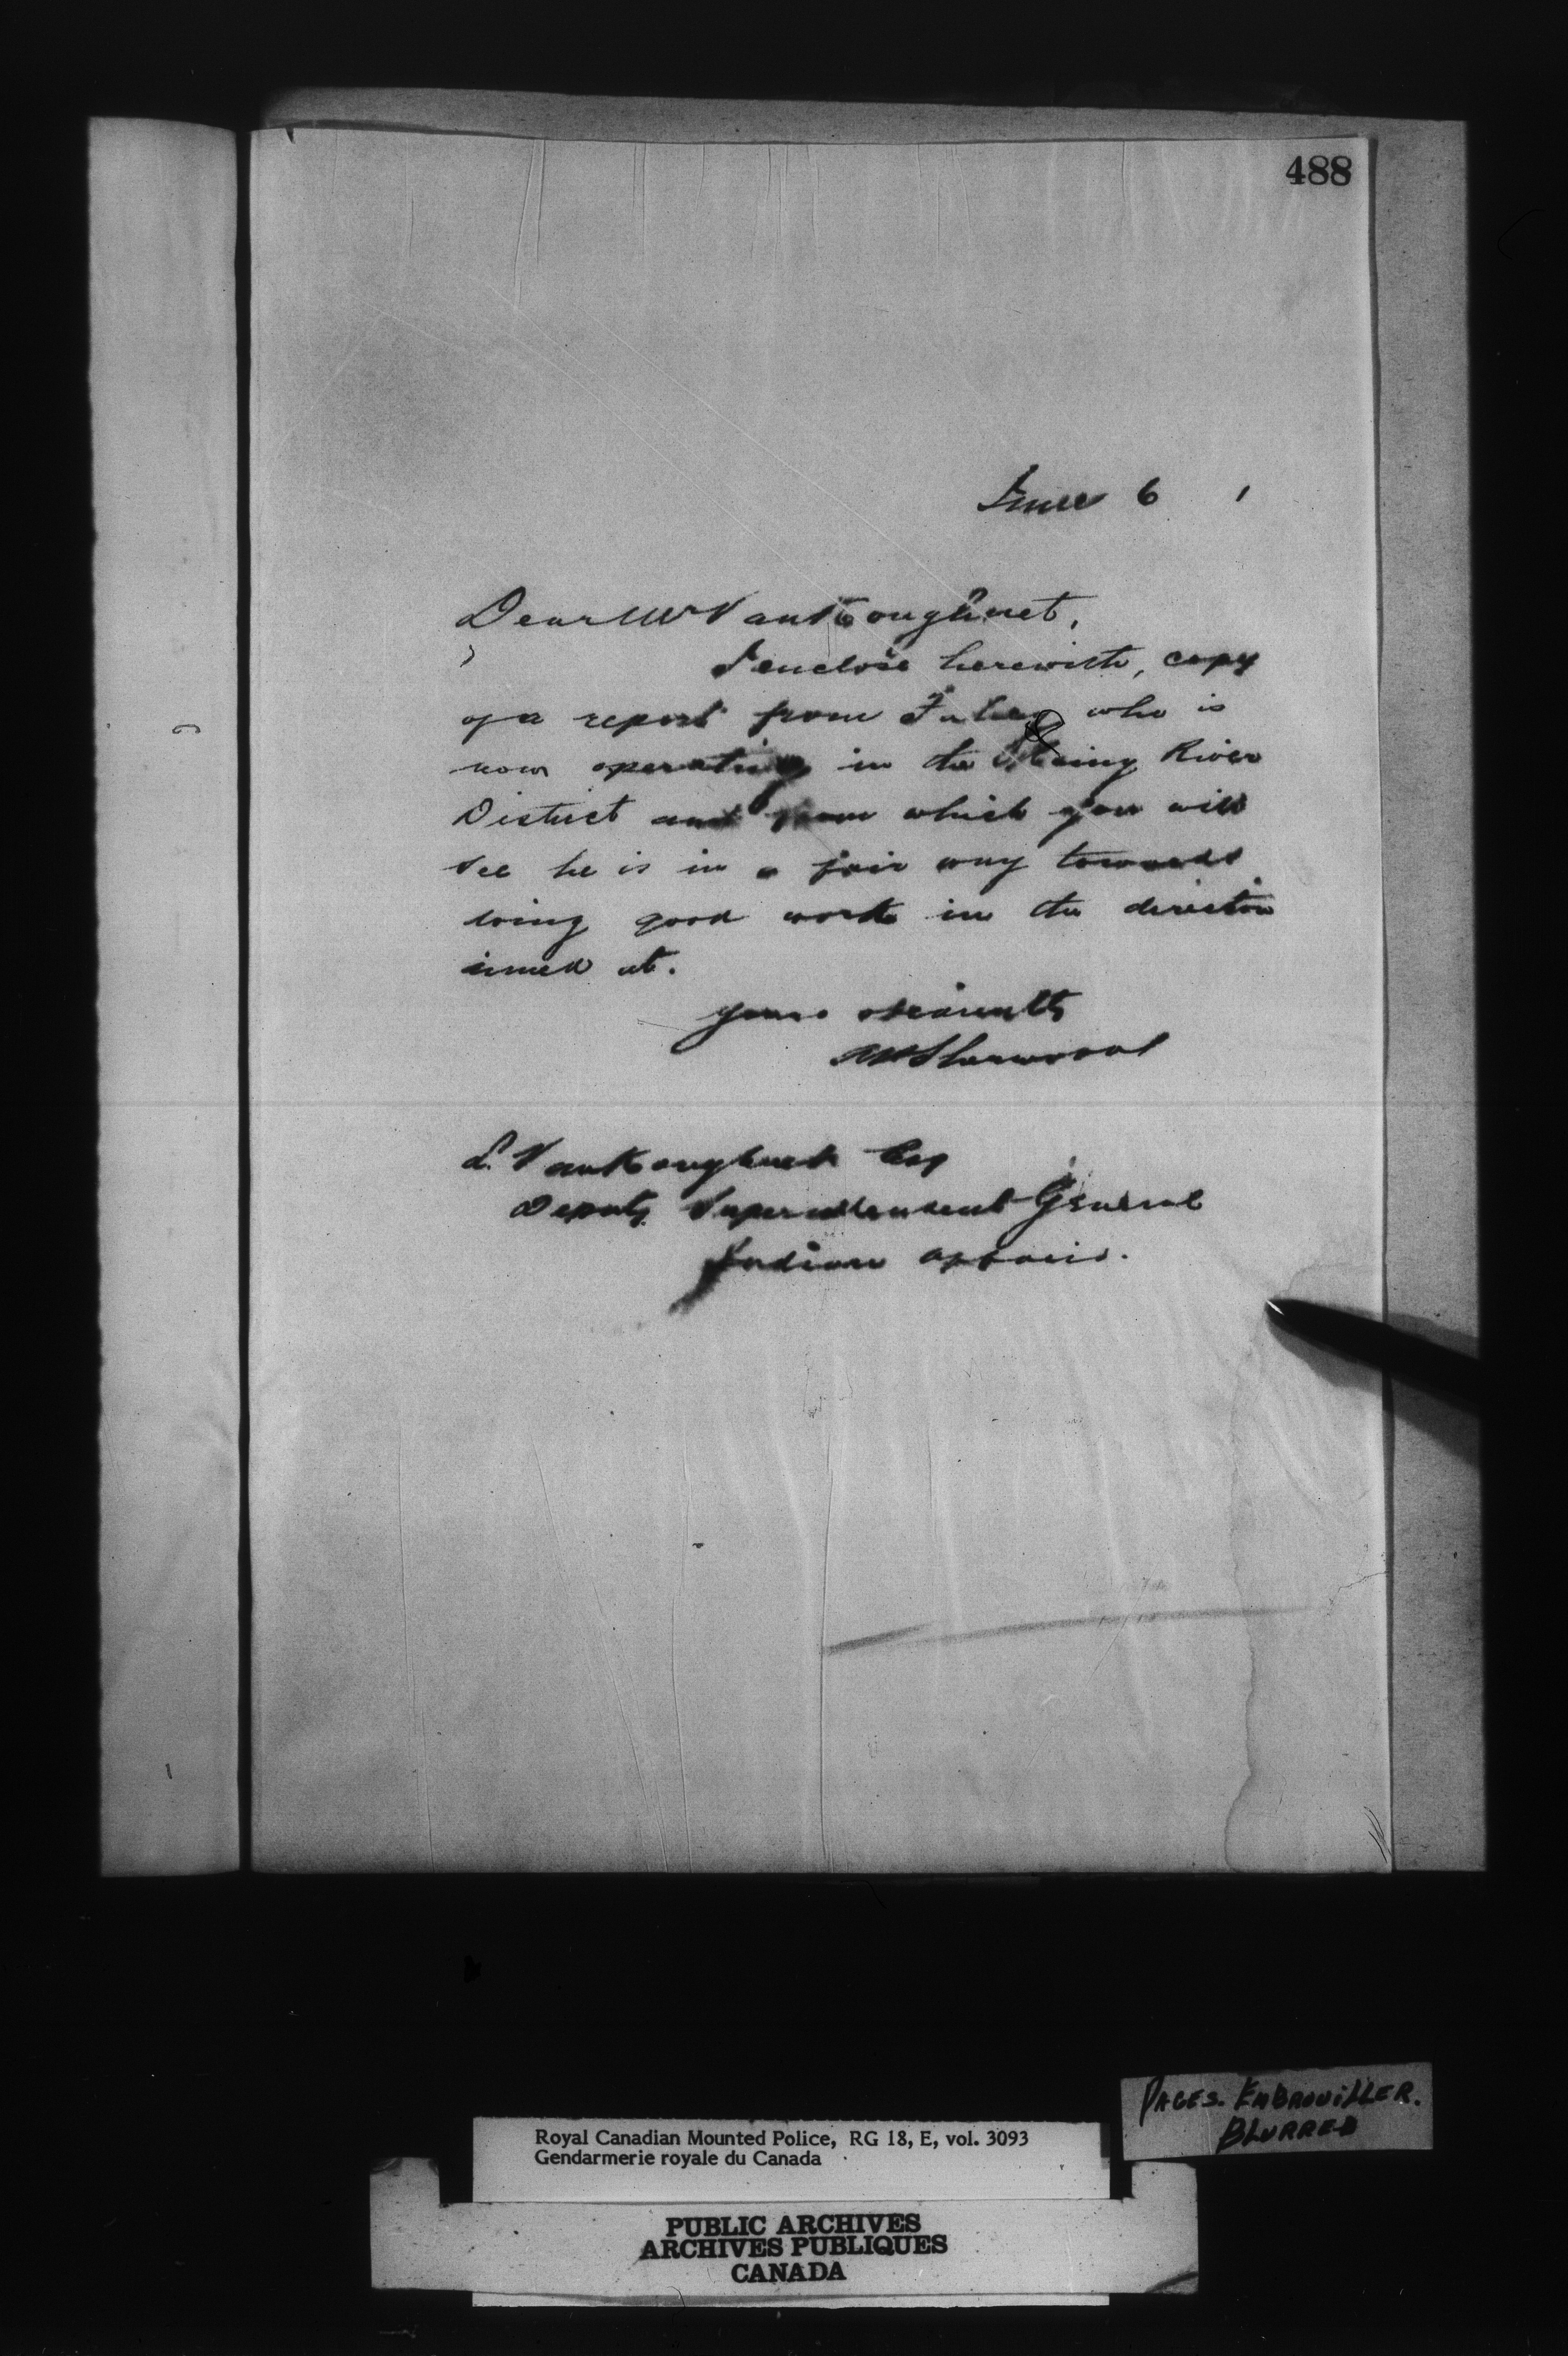 488
June 6 1
Dear Mr VanKoughnet,
I enclose herewith, copy
of a report from who is
now operating in the Rainy River
District and from which you will
see he is in a fair way towards
doing good work in the direction
aimed at.
Yours sincerely
AP Sherwood
L. VanKoughnet Esq
Deputy Superintendent General
Indian Affairs.
PAGES. EMBROUILLER.
BLURRED
Royal Canadian Mounted Police, RG 18, E, vol. 3093
Gendarmerie royale du Canada
PUBLIC ARCHIVES
ARCHIVES PUBLIQUES
CANADA